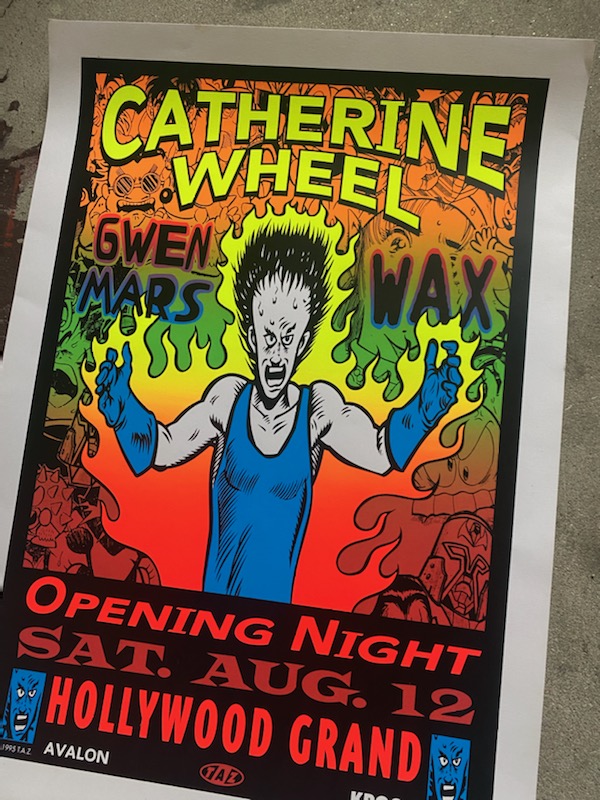 CATHERINE
WHEEL
GWEN
MARS
WAX
OPENING NIGHT
SAT. AUG. 12
HOLLYWOOD GRAND
©1995 T.A.Z.
AVALON
TAZ